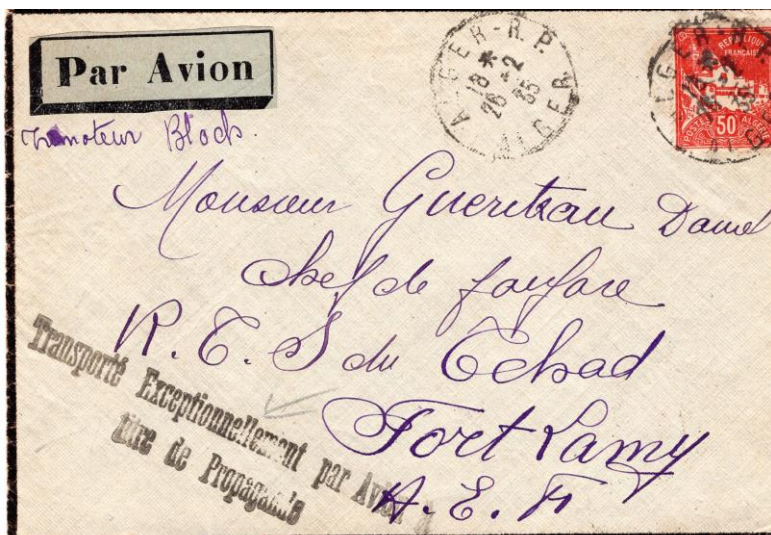 Par Avion
Trimoteur Bloch.
ALGER-R.P.
18 *
26 -2
35
ALGER
REPUBLIQUE
FRANÇAISE
POSTES 50 ALGERIE
Monsieur Gueriteau Daniel
chef de fanfare
R. T. S du Tchad
Fort Lamy
A. E. F
Transporté Exceptionnellement par Avion à
titre de Propagande